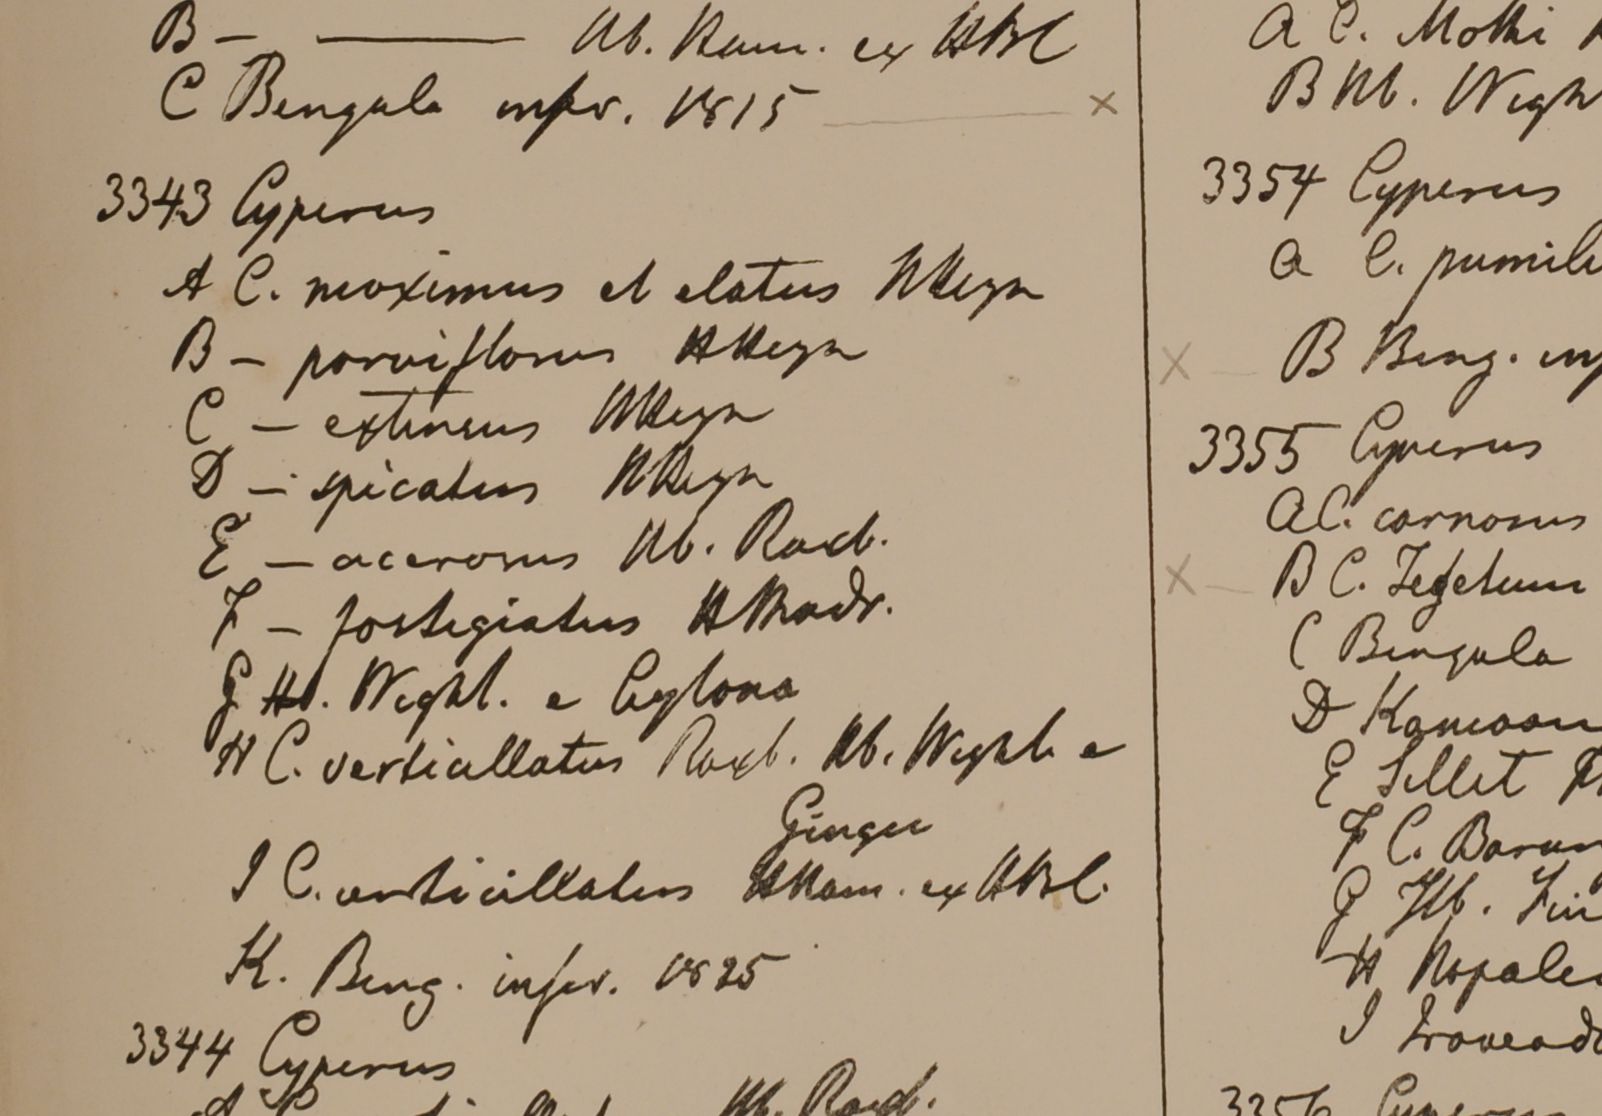 B — ——— Hb. Ham. ex HBC
C Bengala infer. 1815 ——— ×
3343 Cyperus
A C. maximus et elatus HHeyn
B — parviflorus HHeyn
C — extensus HHeyn
D — spicatus HHeyn
E — acerosus Hb. Roxb.
F — fastigiatus HMadr.
G Hb. Wight. e Ceylona
H C. verticillatus Roxb. Hb. Wight. e
Gingee
I C. verticillatus HHam. ex HBC.
K. Beng. infer. 1825
3344 Cyperus
A C. Hb. Roxb.
A C. 
B Hb. Wigh
3354 Cyperus
a C. pumil
× — B Beng. inf
3355 Cyperus
a C. carnosus
× — B C. Segetum
C Bengala
D Kamaon
E Sillet
F C. Barun
G Hb. Fin
H Napale
I
3356 Cyperus